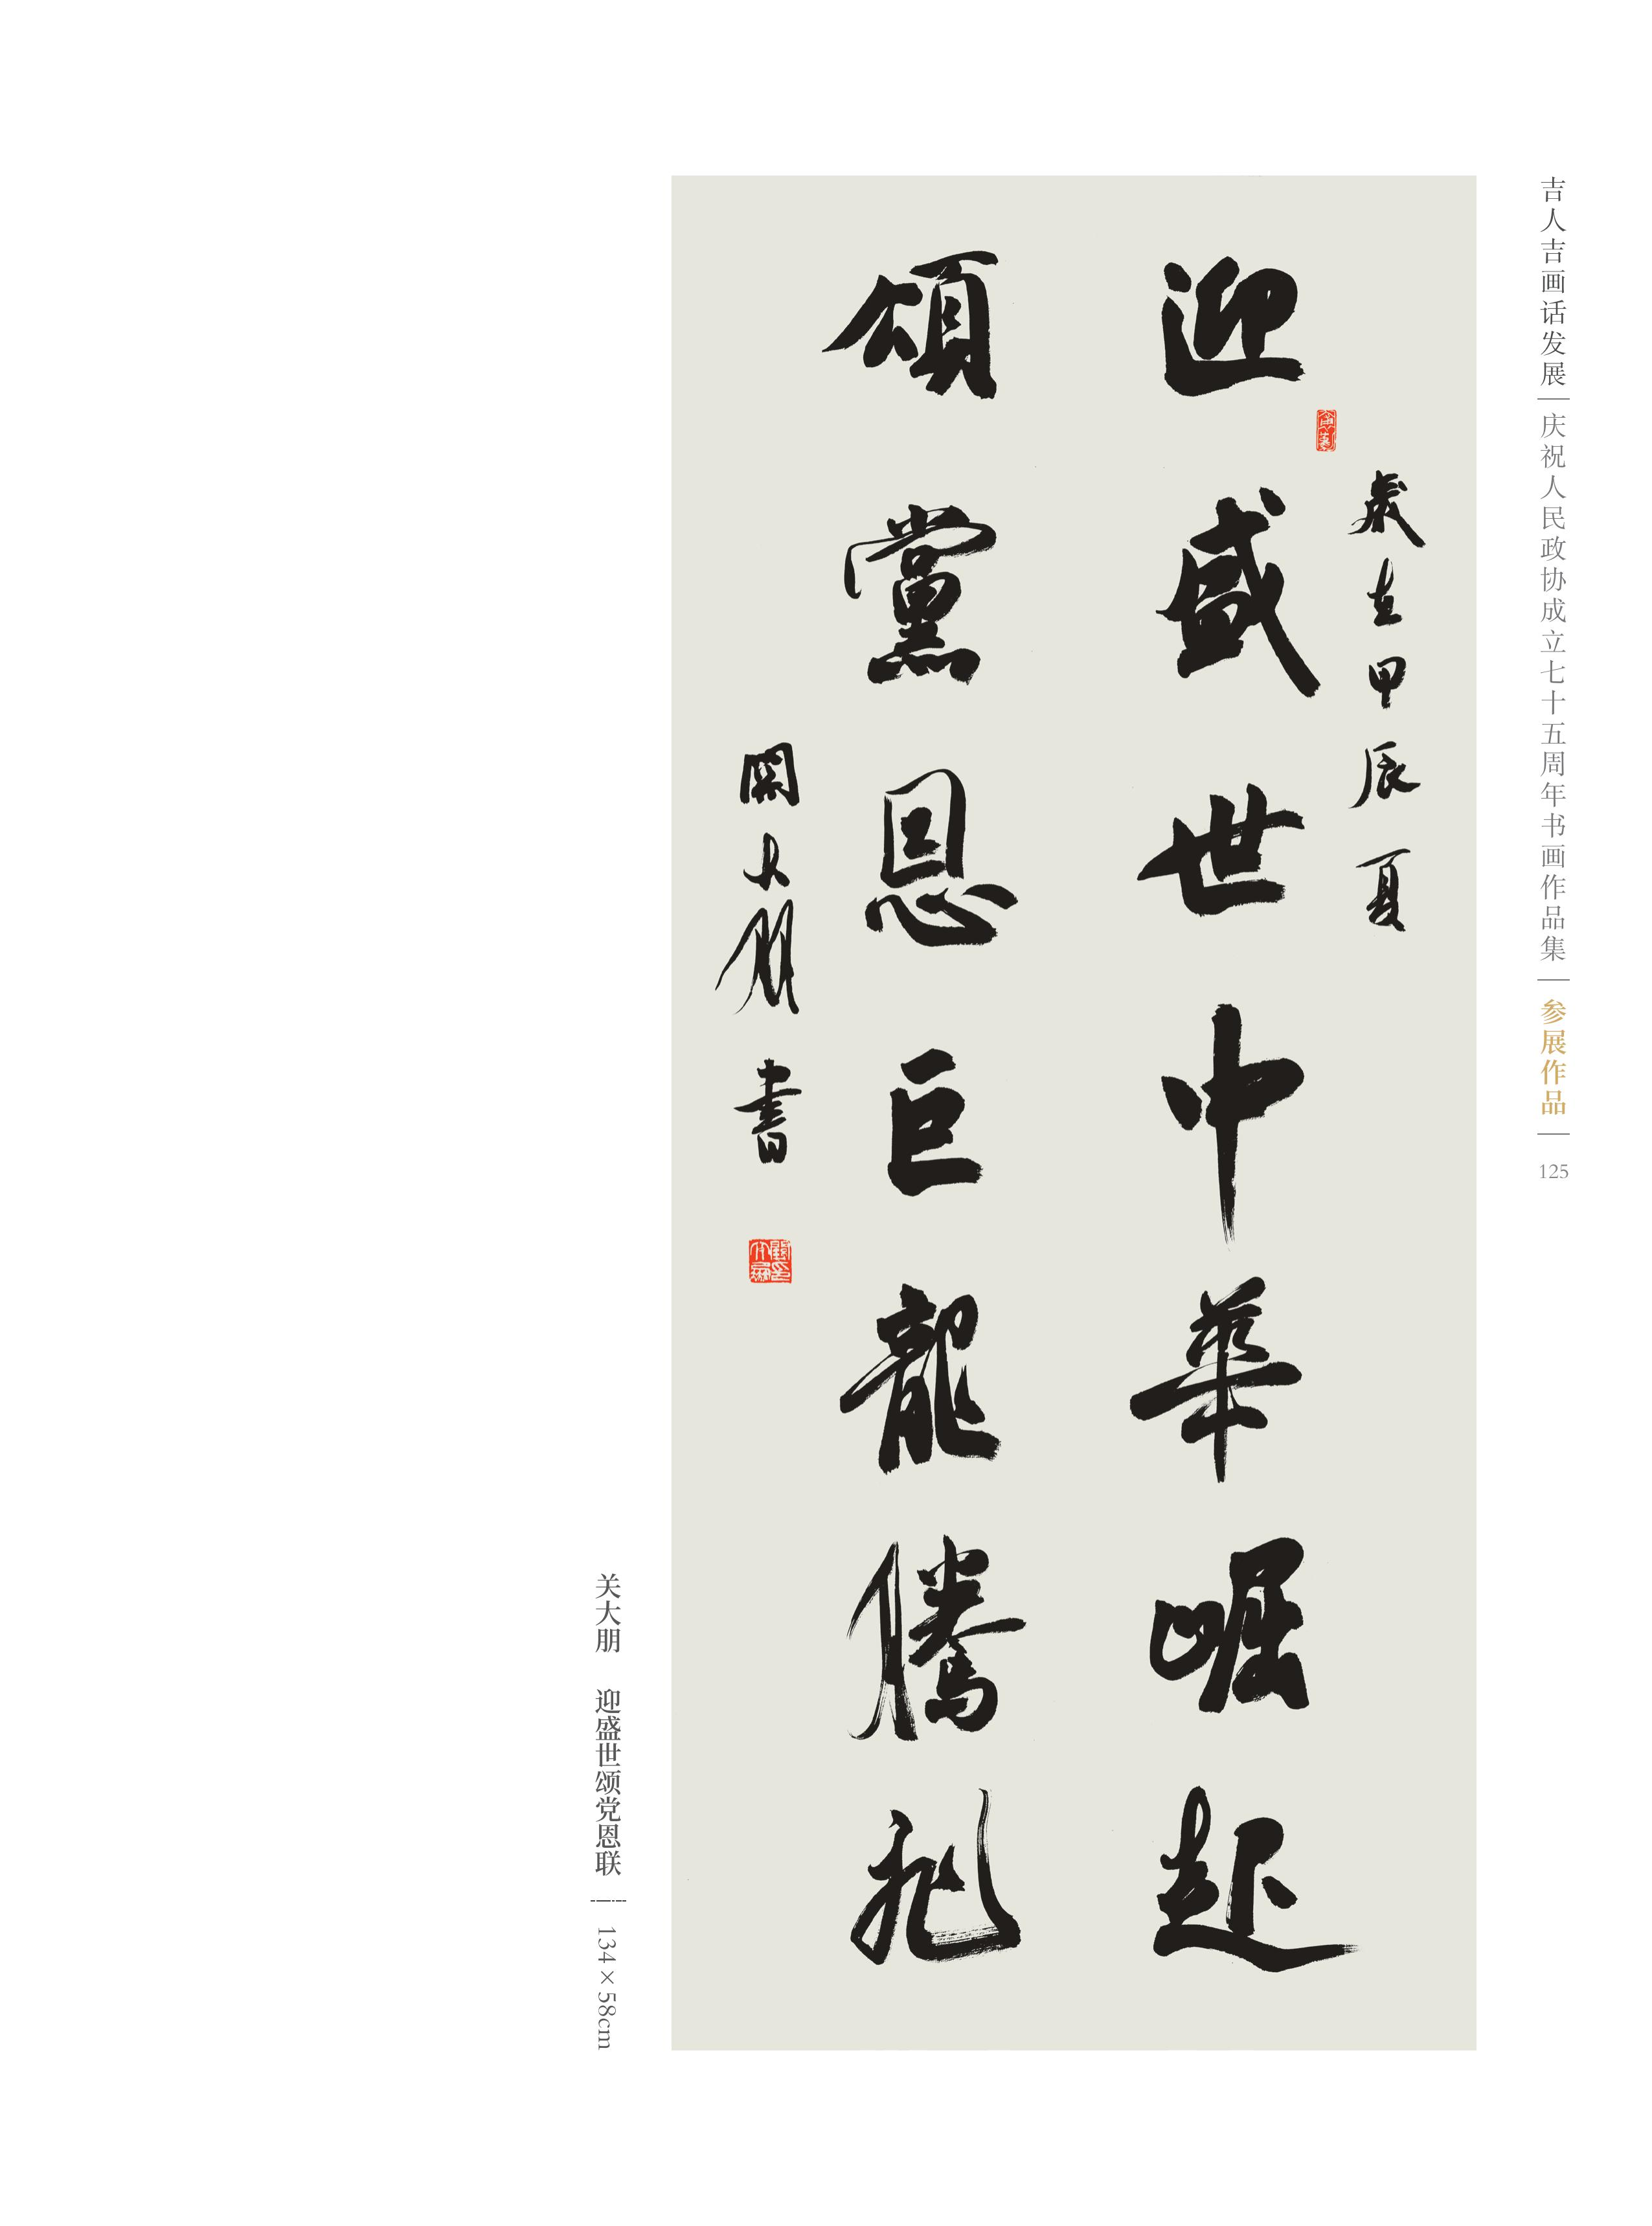 吉人吉画话发展
庆祝人民政协成立七十五周年书画作品集
参展作品
125
歲在甲辰夏
迎盛世中華崛起
頌黨恩巨龍騰飛
關大朋書
关大朋 迎盛世颂党恩联
134×58cm